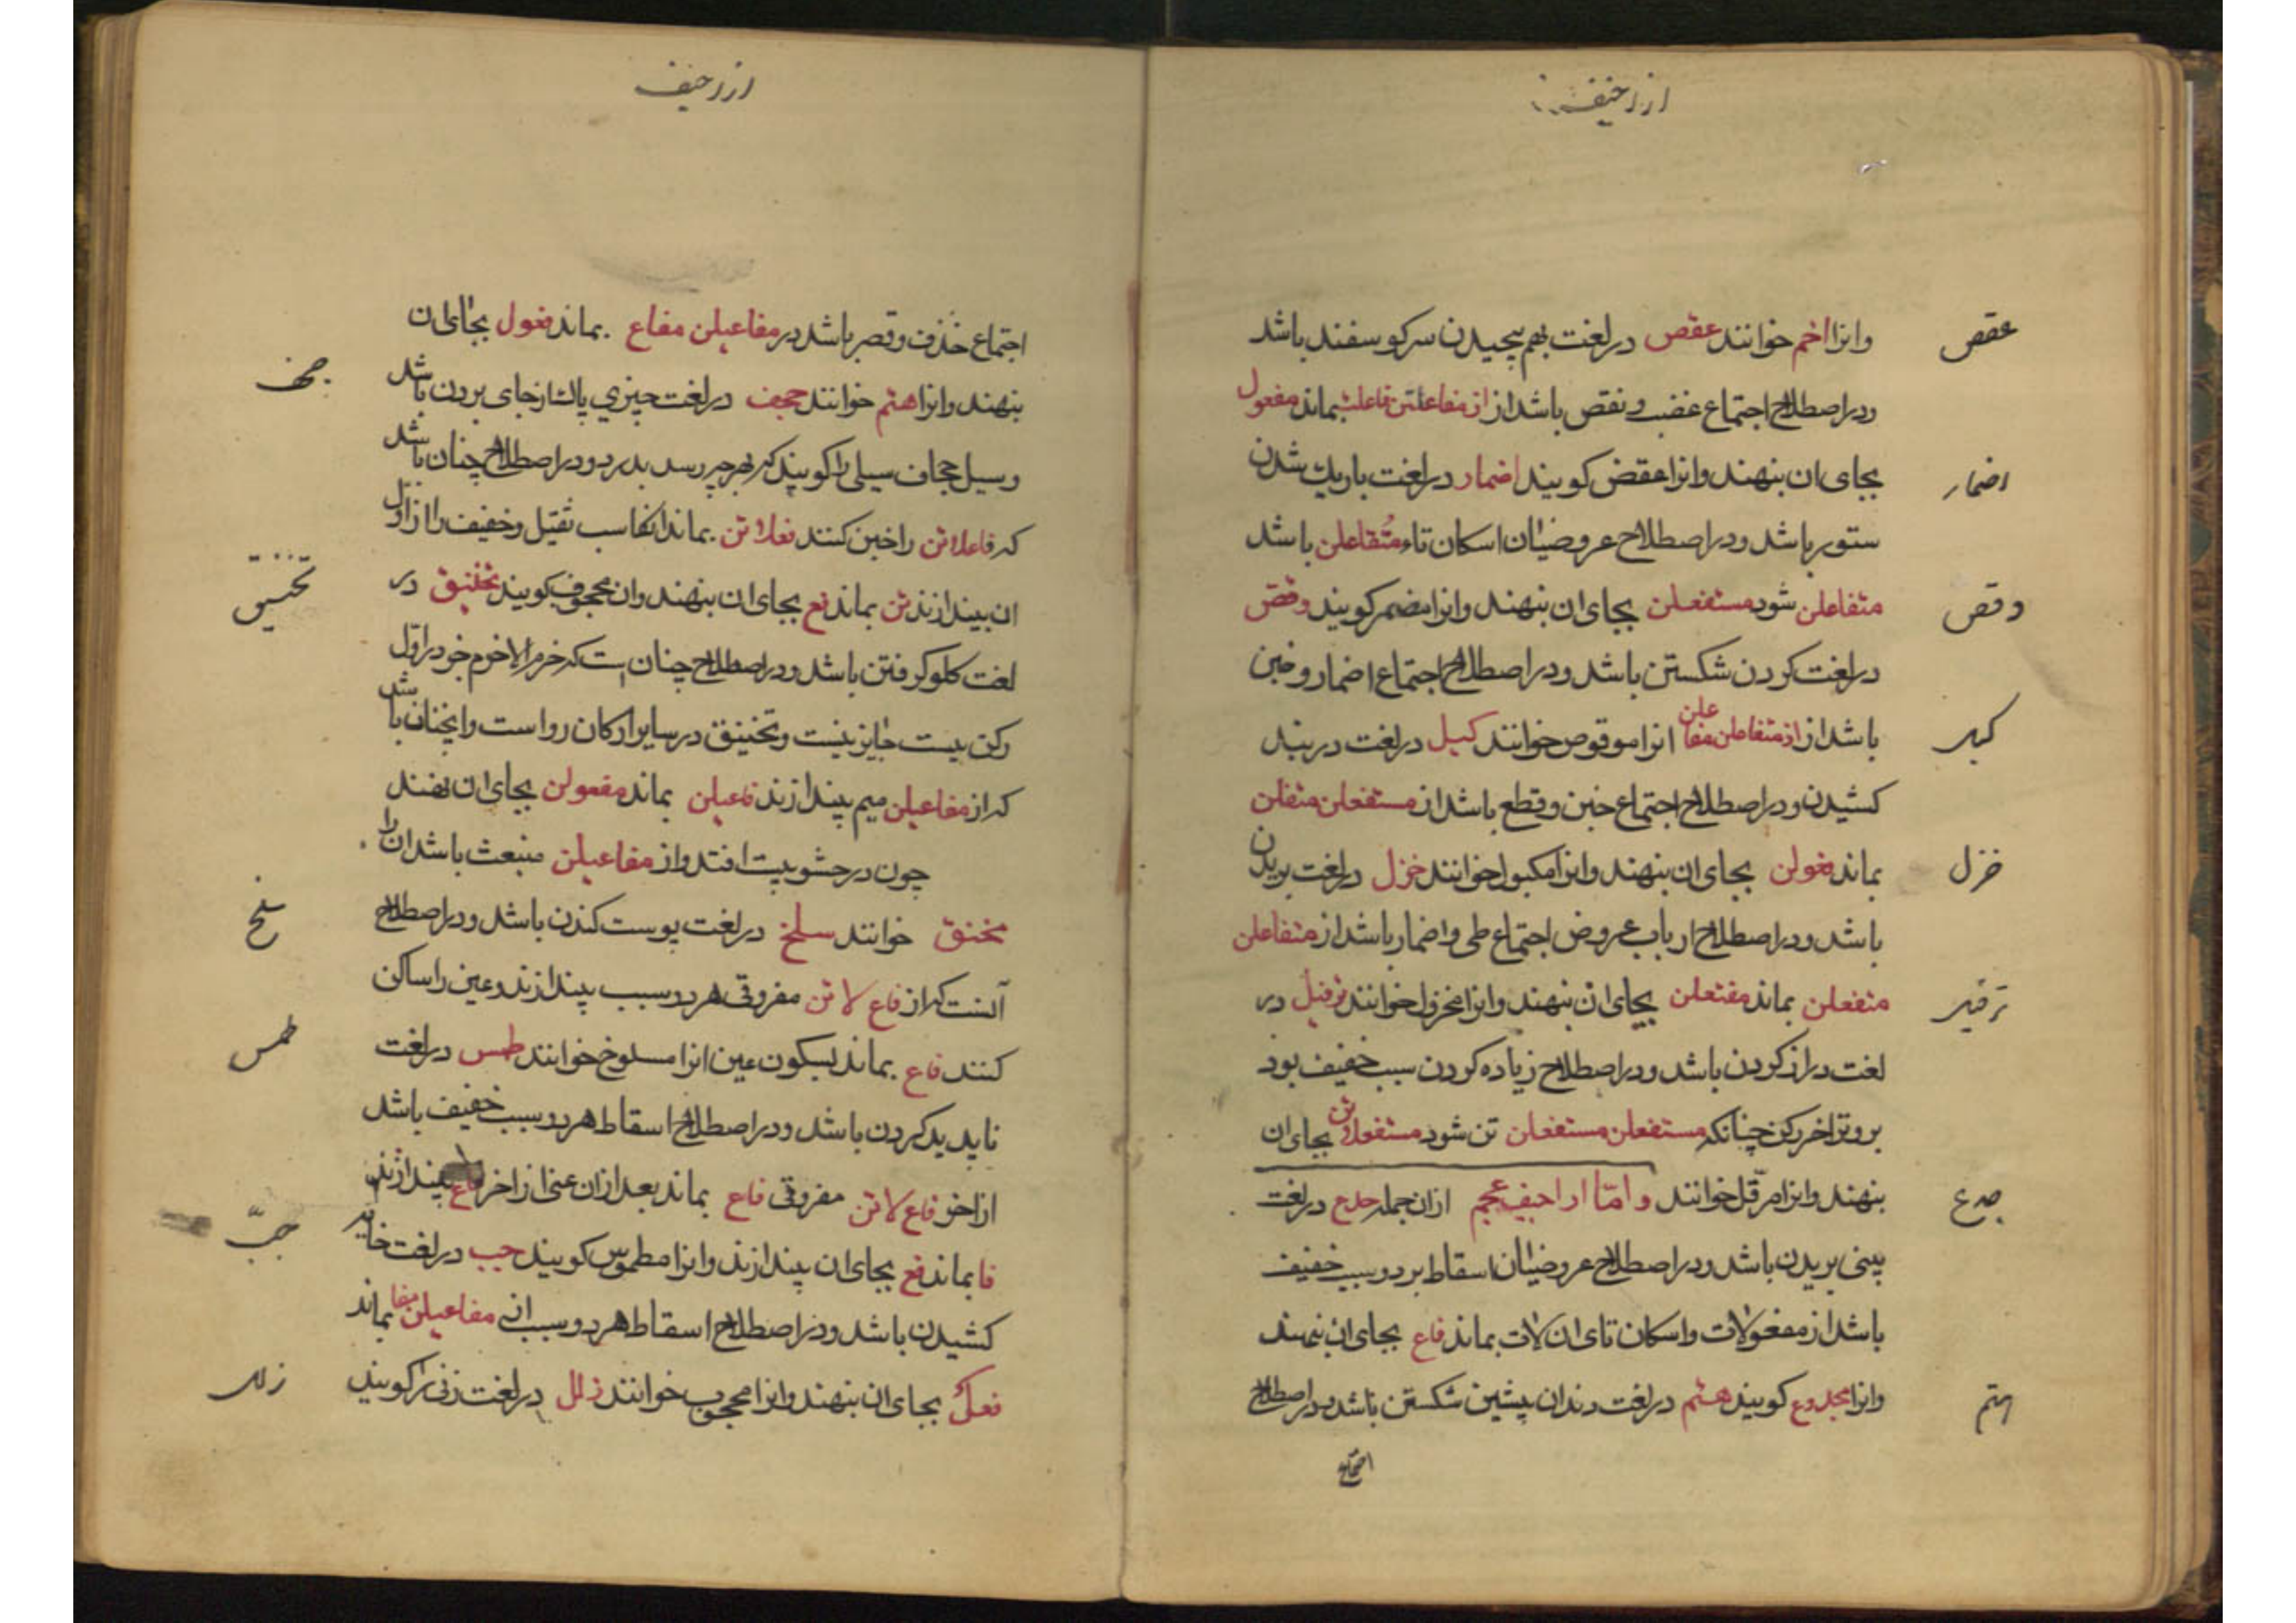 ازاحیف
عقص
وانرا اخم خوانند عقص در لغت بهم پیچیدن سر کوسفند باشد
ودر اصطلاح اجتماع عضب ونقص باشد از از مفاعلتن فاعلت بماند مفعول
اضمار
بجای ان بنهند وانرا عقض کویند اضمار در لغت باریك شدن
ستور باشد ودر اصطلاح عروضیان اسکان تاء متفاعلن باشد
وقص
متفاعلن شود مستفعلن بجای ان بنهند وانرا مضمر کویند وقص
در لغت کردن شکستن باشد ودر اصطلاح اجتماع اضمار وخبن
کبل
باشد از از متفاعلن مفاعلن انرا موقوص خوانند کبل در لغت در بند
کشیدن ودر اصطلاح اجتماع خبن وقطع باشد از مستفعلن متفلن
خزل
بماند فعولن بجای ان بنهند وانرا مکبول خوانند خزل در لغت بریدن
باشد ودر اصطلاح ارباب عروض اجتماع طی واضمار باشد از متفاعلن
ترفیل
متفعلن بماند مفتعلن بجای ان بنهند وانرا مخزول خوانند ترفیل در
لغت دراز کردن باشد ودر اصطلاح زیاده کردن سبب خفیف بود
بر وتد اخر رکن چنانکه مستفعلن مستفعلن تن شود مستفعلاتن بجای ان
جدع
بنهند وانرا مرفّل خوانند وامّا ازاحیف عجم ازان جمله جدع در لغت
بینی بریدن باشد ودر اصطلاح عروضیان اسقاط هر دو سبب خفیف
باشد از مفعولات واسکان تای ان لات بماند فاع بجای ان بنهند
هتم
وانرا مجدوع کویند هتم در لغت دندان پیشین شکستن باشد ودر اصطلاح
اجتماع
ازاحیف
اجتماع حذف وقصر باشد در مفاعیلن مفاع بماند فعول بجای ان
جحف
بنهند وانرا هتم خوانند جحف در لغت چیزی پاك از جای بردن باشد
وسیل حجاف سیلی را کویند که بهرچه رسد ببرد ودر اصطلاح چنان باشد
که فاعلاتن را خبن کنند فعلاتن بماند انکاه سبب ثقیل وخفیف را از اول
تخنیق
ان بیندازند تن بماند فع بجای ان بنهند وان محجوف کویند تخنیق در
لغت کلو کرفتن باشد ودر اصطلاح چنان است که خرم الا خرم خود در اوّل
رکن بیت جایز نیست وتخنیق در سایر ارکان رواست واینچنان باشد
که از مفاعیلن میم بیندازند فاعیلن بماند مفعولن بجای ان نهند
چون در حشو بیت افتد واز مفاعیلن منبعث باشد ان را
سلخ
مخنق خوانند سلخ در لغت پوست کندن باشد ودر اصطلاح
آنست که از فاع لاتن مفروقی هر دو سبب بیندازند وعین را ساکن
طمس
کنند فاع بماند بسکون عین انرا مسلوخ خوانند طمس در لغت
ناپدید کردن باشد ودر اصطلاح اسقاط هر دو سبب خفیف باشد
از اخر فاع لاتن مفروقی فاع بماند بعد ازان عین از اخر فاع بیندازند
جبّ
فا بماند فع بجای ان بیندازند وانرا مطموس کویند جب در لغت خایه
کشیدن باشد ودر اصطلاح اسقاط هر دو سبب از مفاعیلن مفا بماند
زلل
فعل بجای ان بنهند وانرا مجبوب خوانند زلل در لغت زنی را کویند